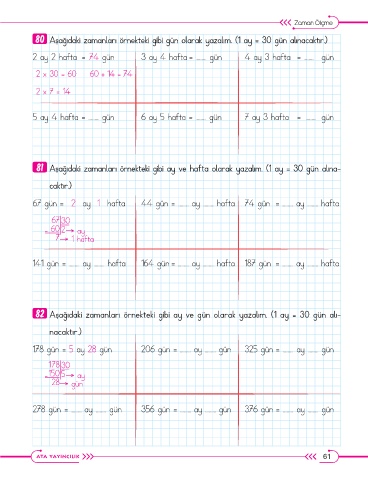 Zaman Ölçme
80 Aşağıdaki zamanları örnekteki gibi gün olarak yazalım. (1 ay = 30 gün alınacaktır.)
2 ay 2 hafta = 74 gün 3 ay 4 hafta = ...... gün 4 ay 3 hafta = ...... gün
2 x 30 = 60 60 + 14 = 74
2 x 7 = 14
5 ay 4 hafta = ...... gün 6 ay 5 hafta = ...... gün 7 ay 3 hafta = ...... gün
81 Aşağıdaki zamanları örnekteki gibi ay ve hafta olarak yazalım. (1 ay = 30 gün alına-
caktır.)
67 gün = 2 ay 1 hafta 44 gün = ...... ay ...... hafta 74 gün = ...... ay ...... hafta
67 30
- 60 2 → ay
7 → 1 hafta
141 gün = ...... ay ...... hafta 164 gün = ...... ay ...... hafta 187 gün = ...... ay ...... hafta
82 Aşağıdaki zamanları örnekteki gibi ay ve gün olarak yazalım. (1 ay = 30 gün alı-
nacaktır.)
178 gün = 5 ay 28 gün 206 gün = ...... ay ...... gün 325 gün = ...... ay ...... gün
178 30
- 150 5 → ay
28 → gün
278 gün = ...... ay ...... gün 356 gün = ...... ay ...... gün 376 gün = ...... ay ...... gün
ATA YAYINCILIK 61